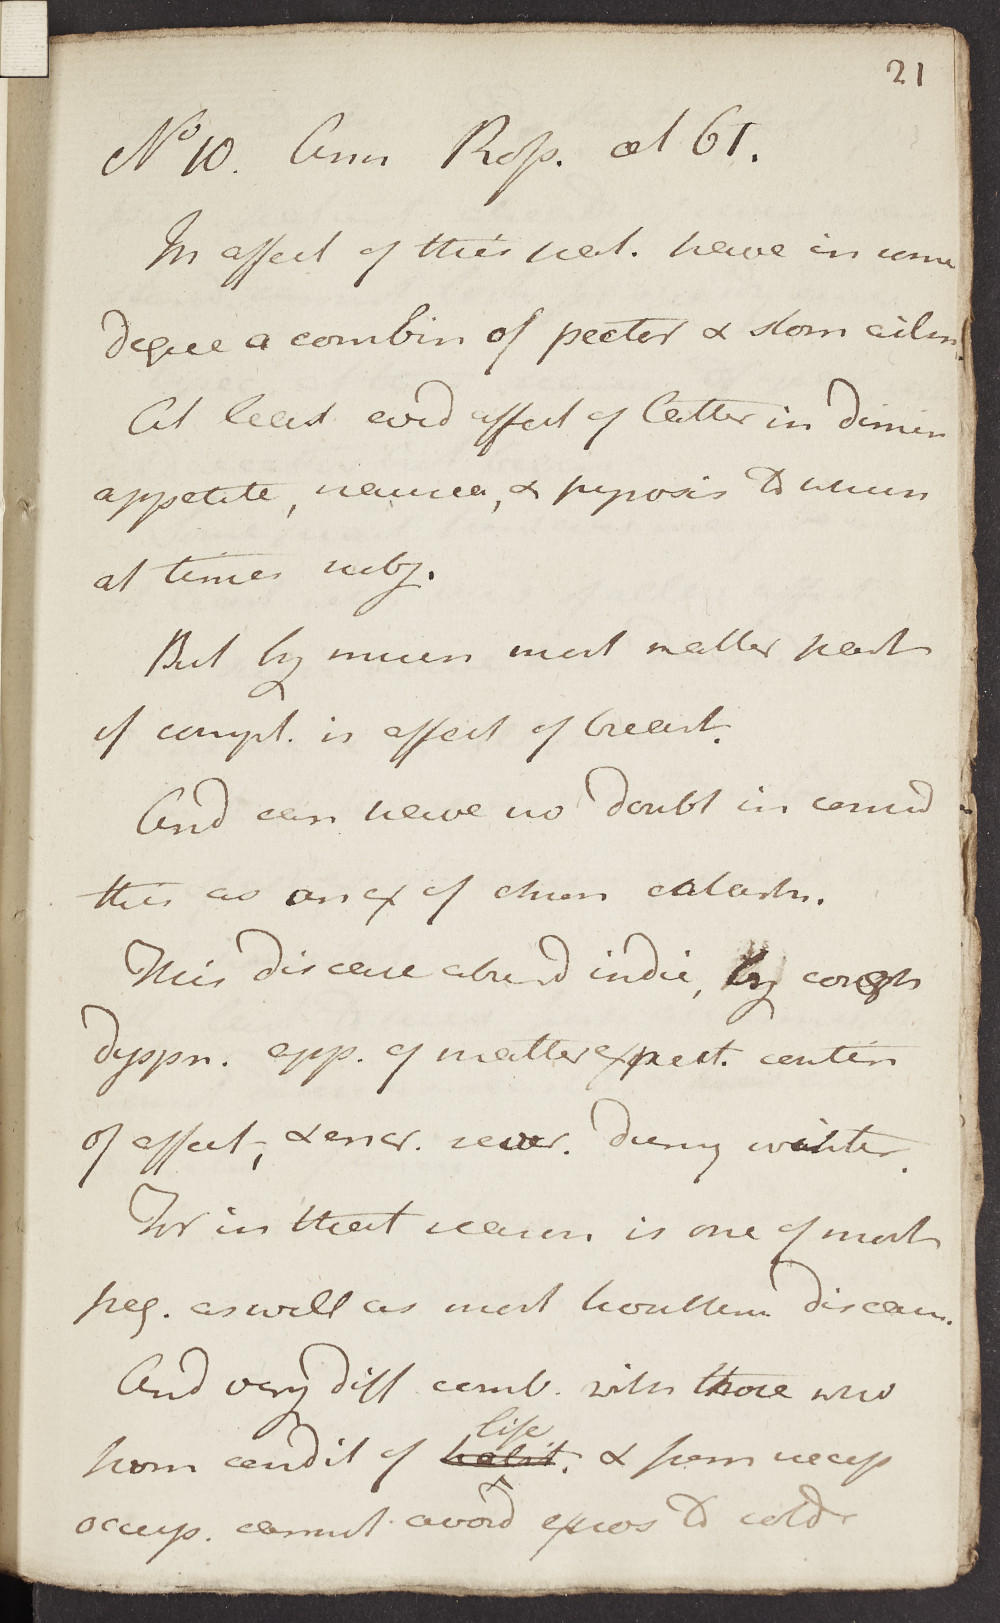 21
No 10. Ann Ross. æt 61.
In affect of this pat. have in some
degree a combin of pector & stom ailm.
At least evid affect of latter in dimin
appetite, nausea, & pyrosis to whom
at times subj.
But by muen most matter part
of compl. is affect of breast.
And can have no doubt in consid
this as an ex of chron catarh.
This disease abund indic, by cough
dyspn. app. of matter expect. contin
of affect, & encr. sever. during winter.
For in that season is one of most
freq. as well as most troublem diseas.
And very diff comb. with those who
from condit of habit. life & from necess
occup. cannot avoid expos to cold